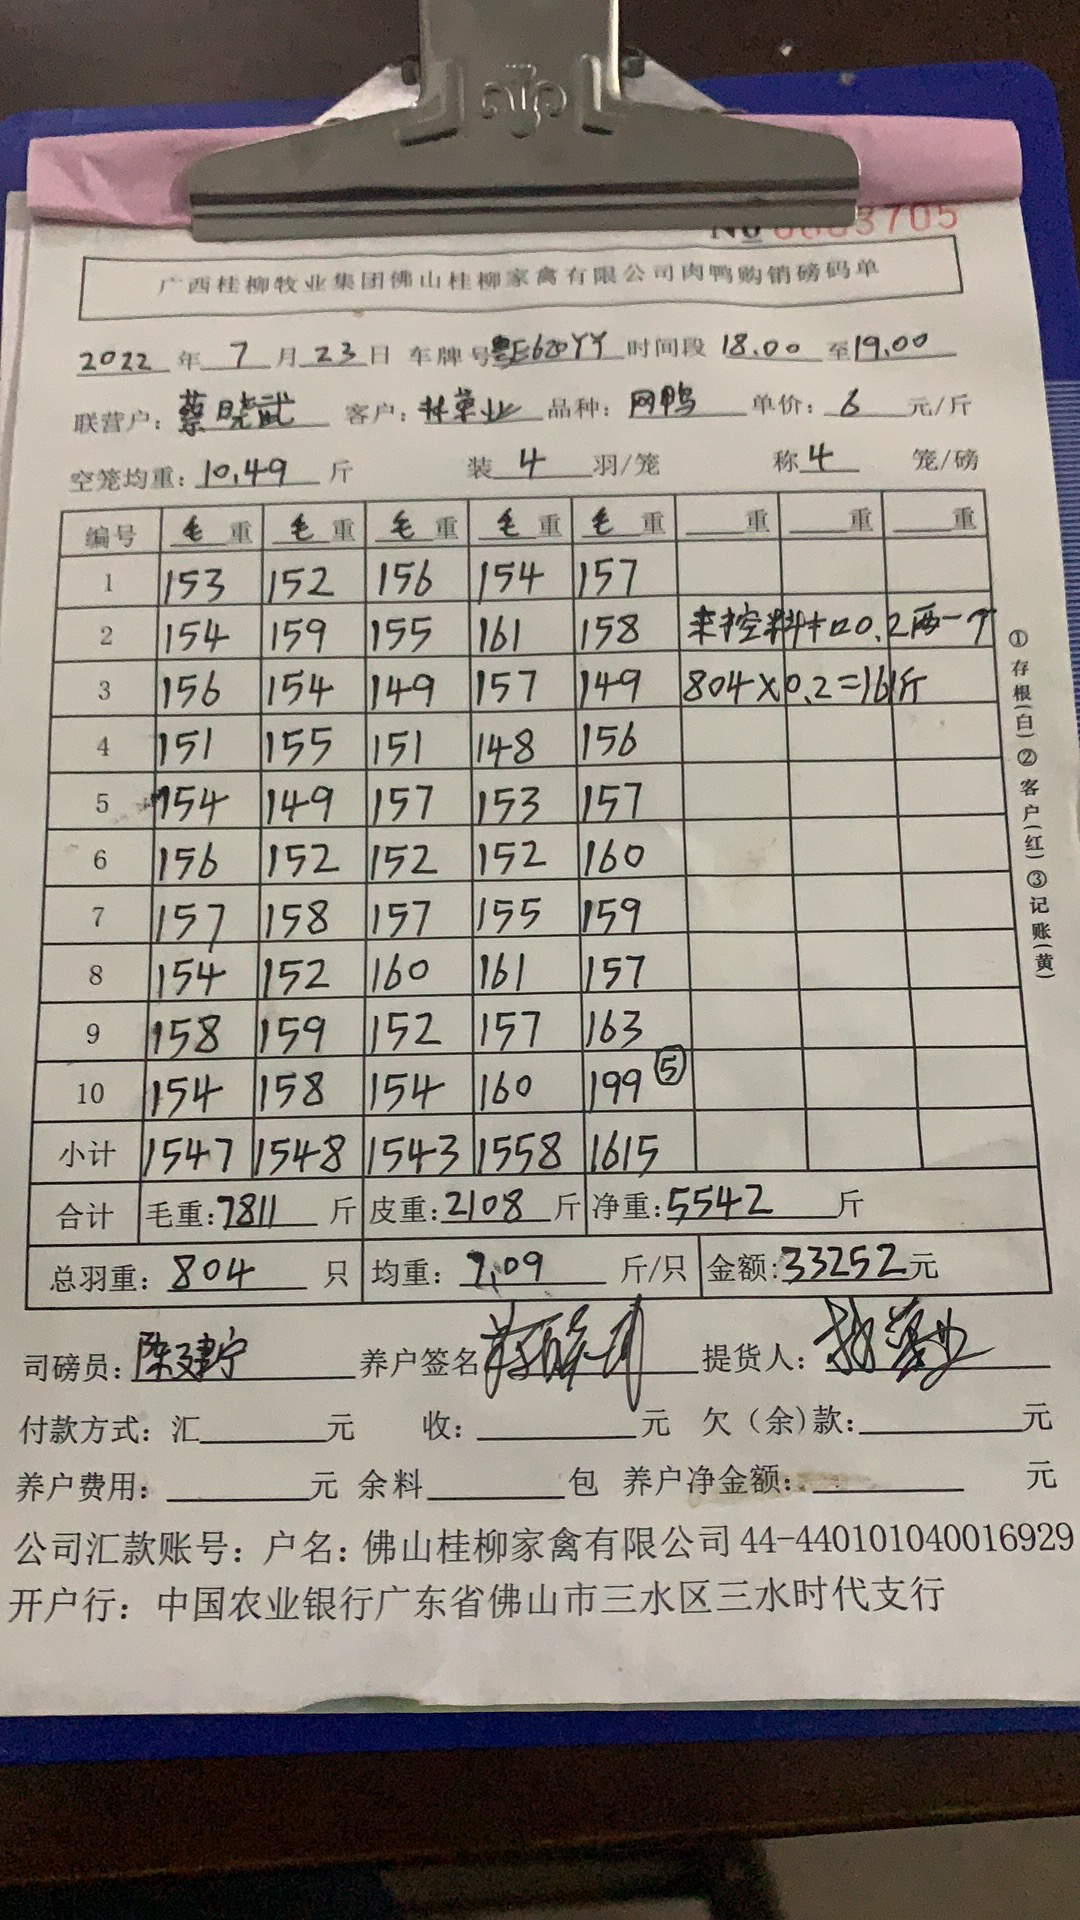 No 0003705
广西桂柳牧业集团佛山桂柳家禽有限公司肉鸭购销磅码单
2022 年 7 月 23 日 车牌号 粤E620YY 时间段 18.00 至 19.00
联营户: 蔡晓武 客户: 林革业 品种: 网鸭 单价: 6 元/斤
空笼均重: 10.49 斤 装 4 羽/笼 称 4 笼/磅
编号 毛重 毛重 毛重 毛重 毛重 重 重 重
1 153 152 156 154 157
2 154 159 155 161 158 未控料扣0.2两一个
3 156 154 149 157 149 804×0.2=161斤
4 151 155 151 148 156
5 154 149 157 153 157
6 156 152 152 152 160
7 157 158 157 155 159
8 154 152 160 161 157
9 158 159 152 157 163
10 154 158 154 160 199 ⑤
小计 1547 1548 1543 1558 1615
合计 毛重: 7811 斤 皮重: 2108 斤 净重: 5542 斤
总羽重: 804 只 均重: 7.09 斤/只 金额: 33252 元
司磅员: 陈建宁 养户签名 提货人:
付款方式: 汇 元 收: 元 欠(余)款: 元
养户费用: 元 余料 包 养户净金额: 元
公司汇款账号: 户名: 佛山桂柳家禽有限公司 44-440101040016929
开户行: 中国农业银行广东省佛山市三水区三水时代支行
①存根(白)②客户(红)③记账(黄)